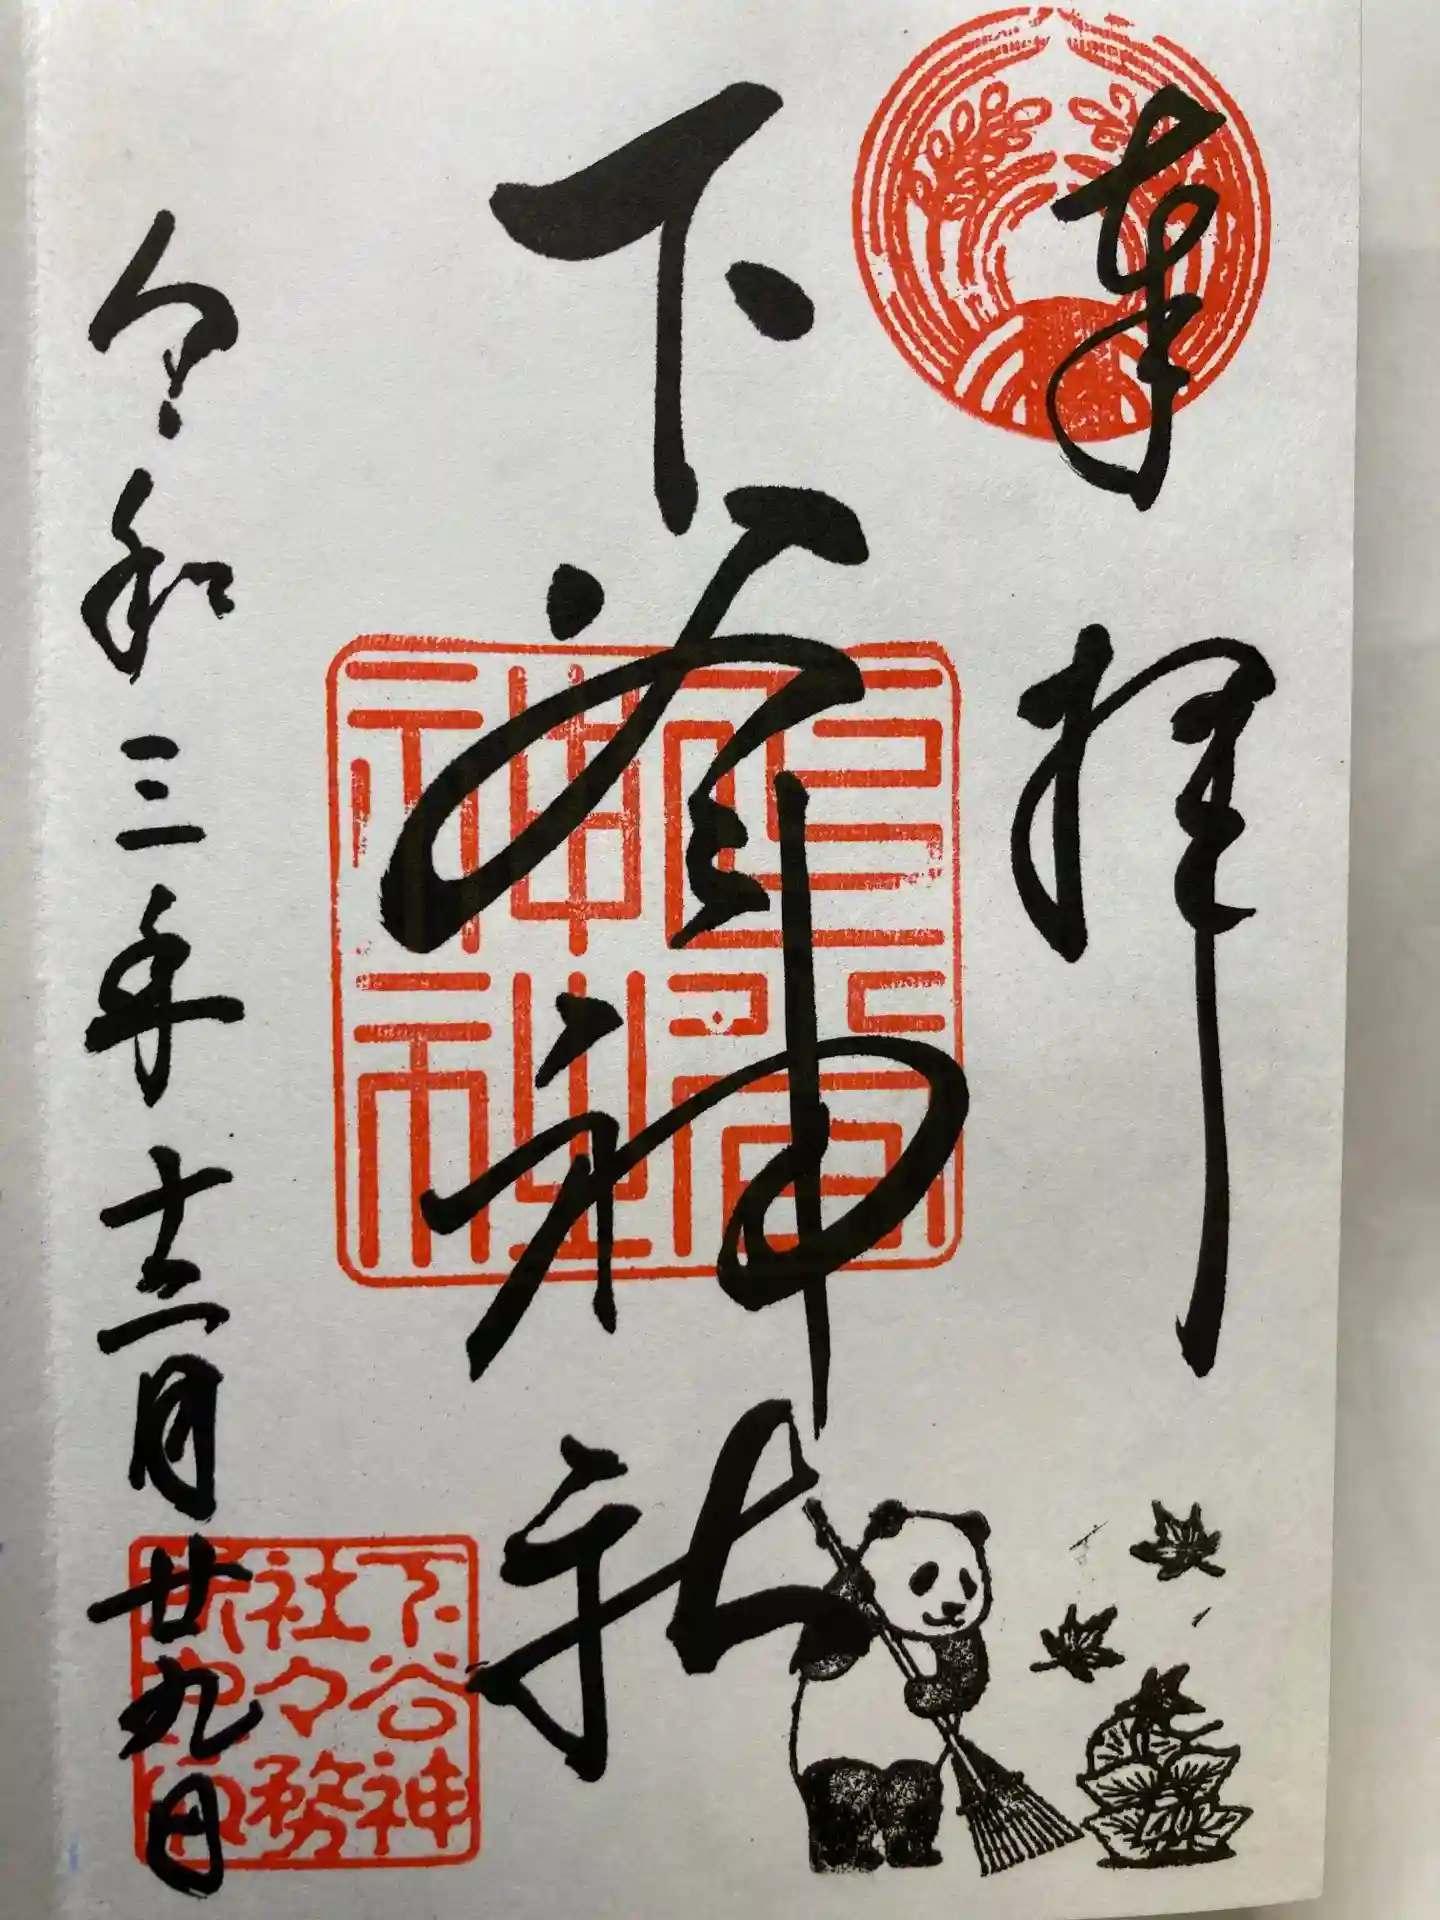 奉拝
下谷神社
下谷神社
下谷神
社々務
令和三年十二月廿九日